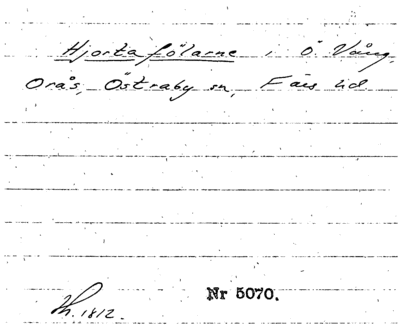 Hjortafölarne i Ö. Vång,
Orås, Östraby sn, Färs hd
Nr 5070.
Th. 1812.